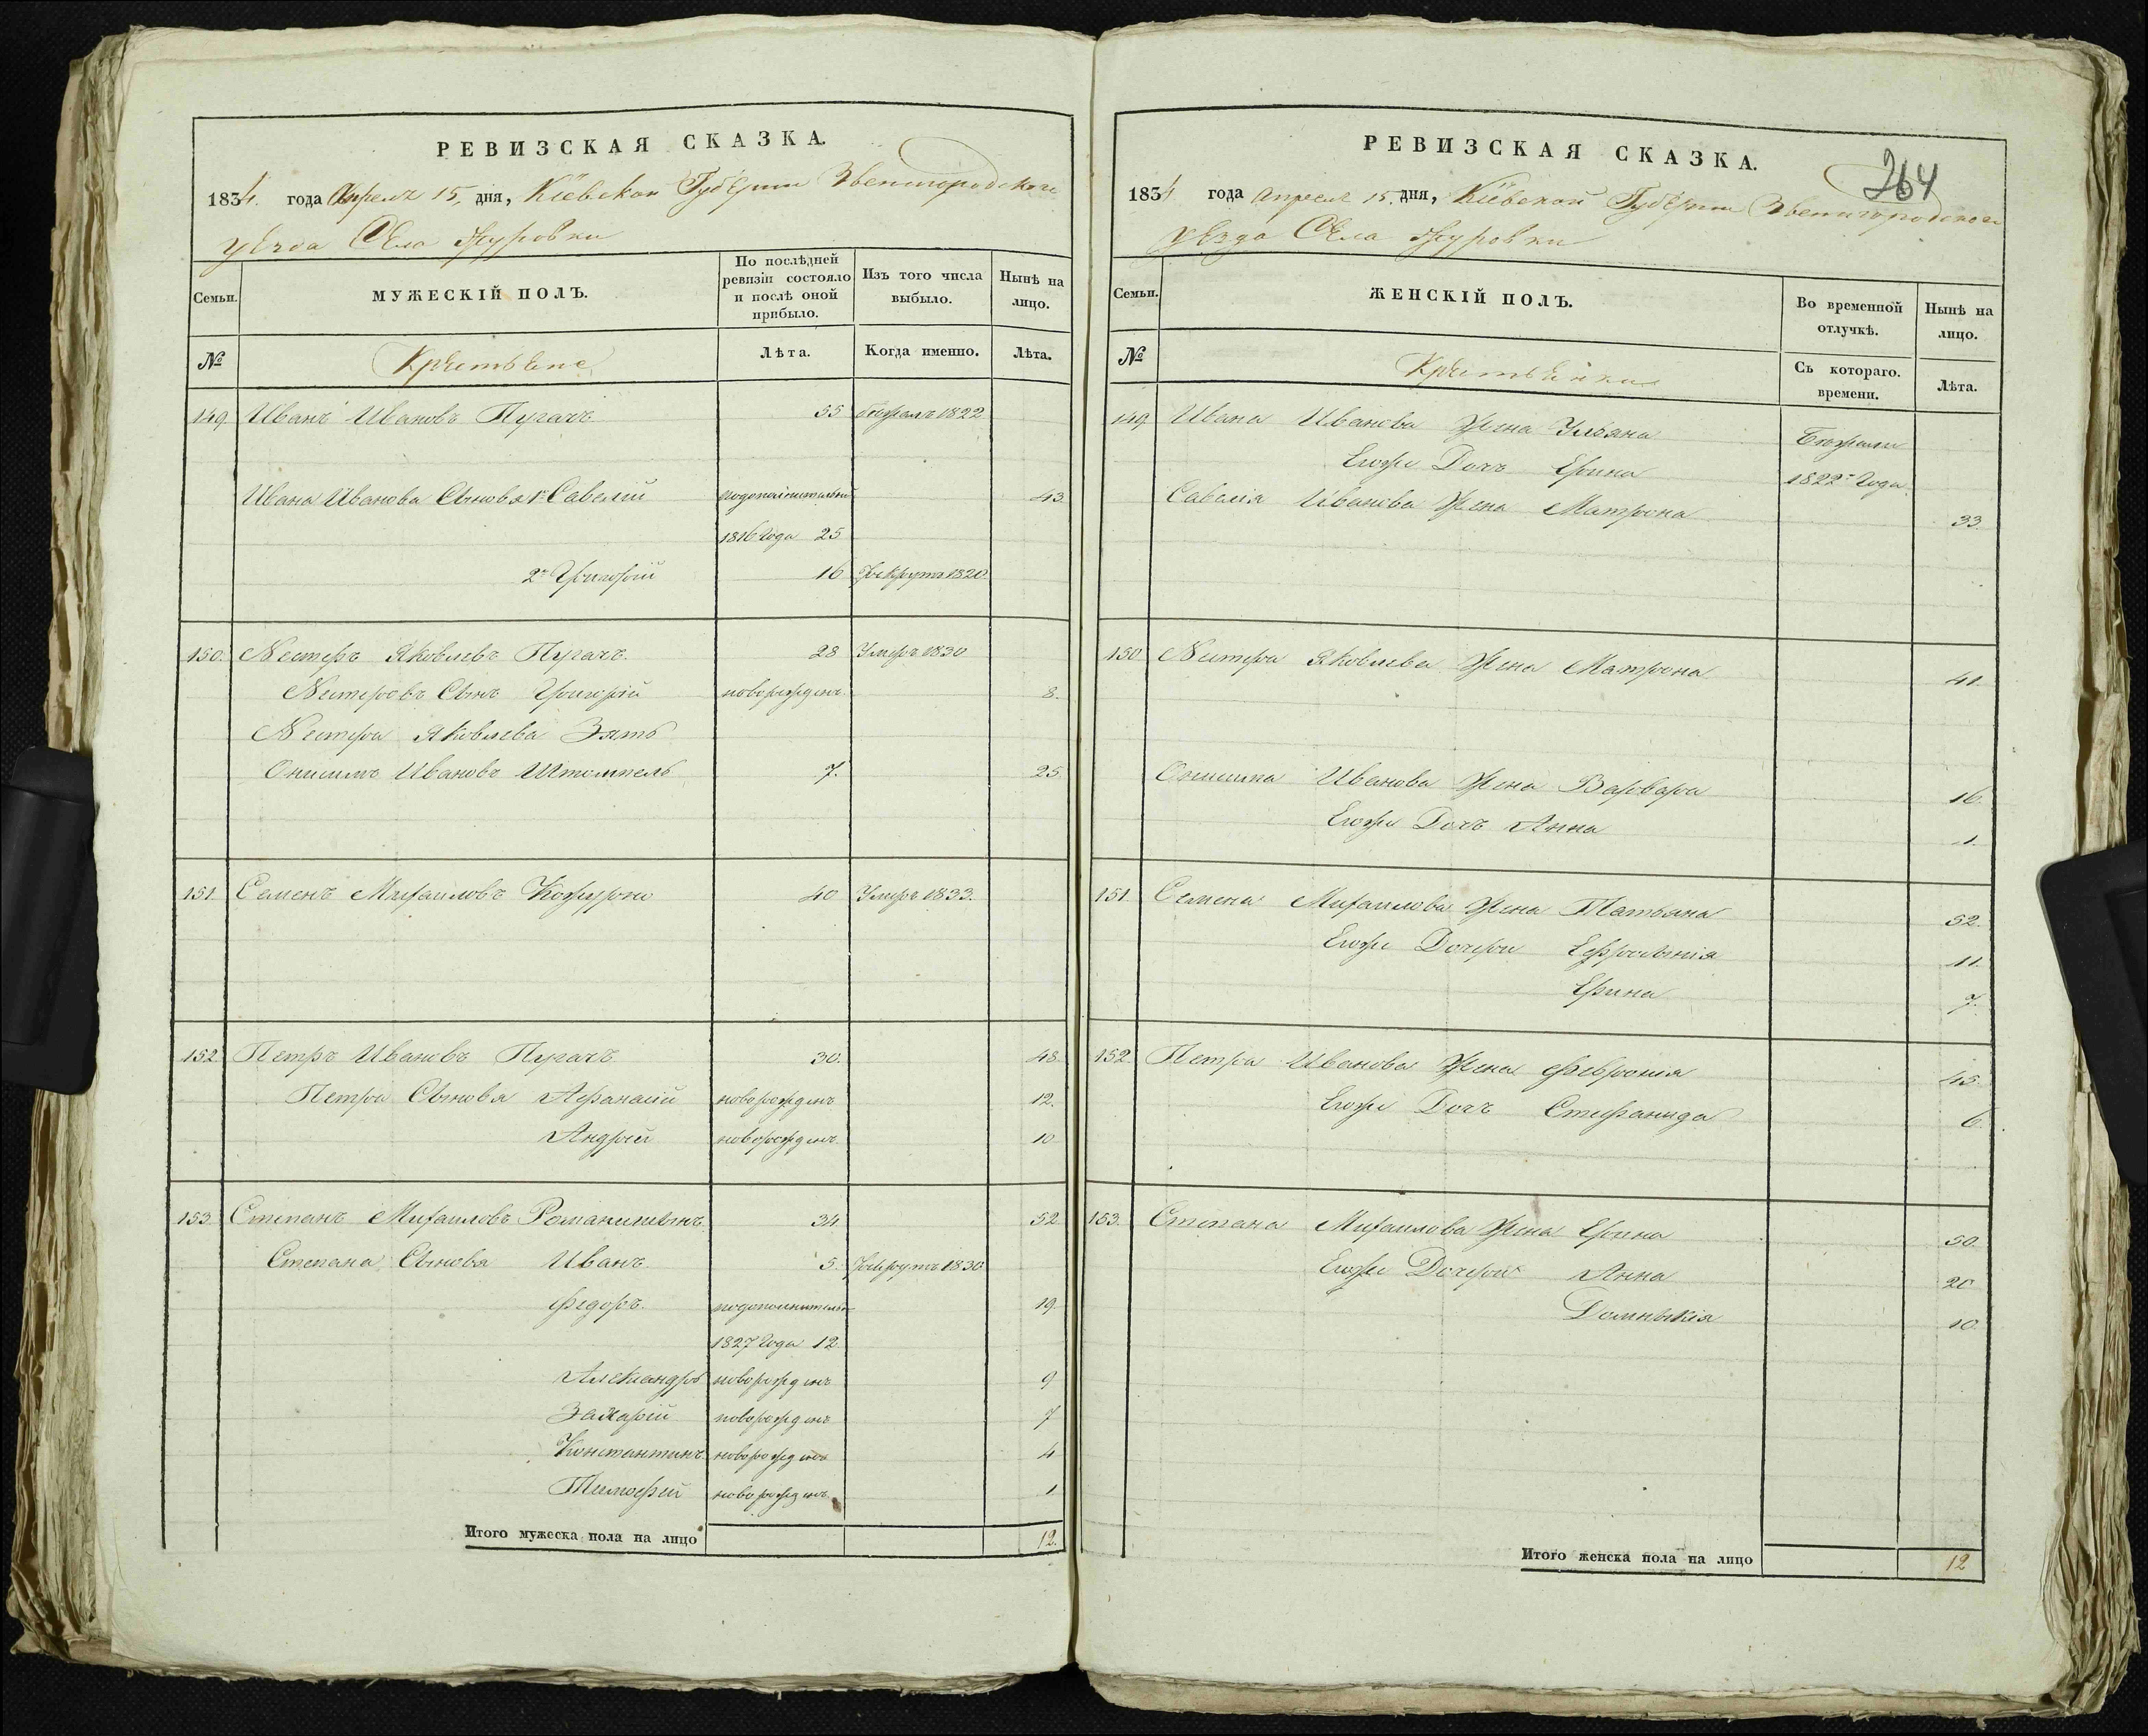 РЕВИЗСКАЯ СКАЗКА.
1834. года Апреля 15, дня, Кіевской Губерніи Звенигородскаго
уѣзда Села Журовки
Семьи.
МУЖЕСКІЙ ПОЛЪ.
По послѣдней ревизіи состояло и послѣ оной прибыло.
Изъ того числа выбыло.
Нынѣ на лицо.
№
Крестьяне
Лѣта.
Когда именно.
Лѣта.
149. Иванъ Ивановъ Пугачъ 55 бѣжалъ 1822
Ивана Иванова Сыновья 1й Савелий подополнительной 43.
1816 года 25
2й Григорій 16 Рекрутъ 1820.
150. Нестеръ Яковлевъ Пугачъ. 28 Умеръ 1830
Нестеровъ Сынъ Григорій новорожденъ. 8.
Нестера Яковлева Зять
Онисимъ Ивановъ Штомпель 7. 25.
151. Семенъ Михаиловъ Кожухаръ 40 Умеръ 1833.
152. Петръ Ивановъ Пугачъ 30. 48.
Петра Сыновья Афанасій новорожденъ 12.
Андрей новорожденъ. 10
153. Степанъ Михаиловъ Романишинъ 34 52
Степана Сыновья Иванъ 5. Рекрутъ 1830
Федоръ. подополнительн. 19.
1827 Года 12.
Александръ новорожденъ 9
Захарій новорожденъ 7
Константинъ. новорожденъ 4
Тимофей новорожденъ. 1
Итого мужеска пола на лицо 12.
264
РЕВИЗСКАЯ СКАЗКА.
1834 года Апреля 15. дня, Кіевской Губерніи Звенигородскаго
уѣзда Села Журовки
Семьи.
ЖЕНСКІЙ ПОЛЪ.
Во временной отлучкѣ.
Нынѣ на лицо.
№
Крестьянки
Съ котораго. времени.
Лѣта.
149. Ивана Иванова Жена Ульяна Бежали
Егоже Дочъ Ерина 1822го Года.
Савелія Иванова Жена Матрона 33.
150 Нестера Яковлева Жена Матрона 41.
Онисима Иванова Жена Варвара 16.
Егоже Дочъ Анна 1.
151. Семена Михаилова Жена Татьяна 52.
Егоже Дочери Ефросынія 11.
Ерина 7.
152. Петра Иванова Жена Февронія 45.
Егоже Дочъ Стефанида 6.
153. Степана Михаилова Жена Ерина 50.
Егоже Дочери Анна 20
Домныкія 10.
Итого женска пола на лицо 12